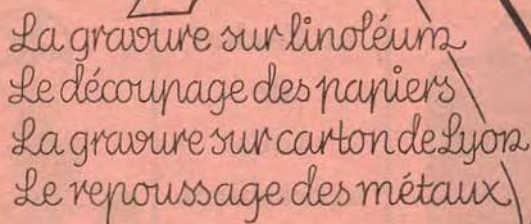 La gravure sur linoléum
Le découpage des papiers
La gravure sur carton de Lyon
Le repoussage des métaux